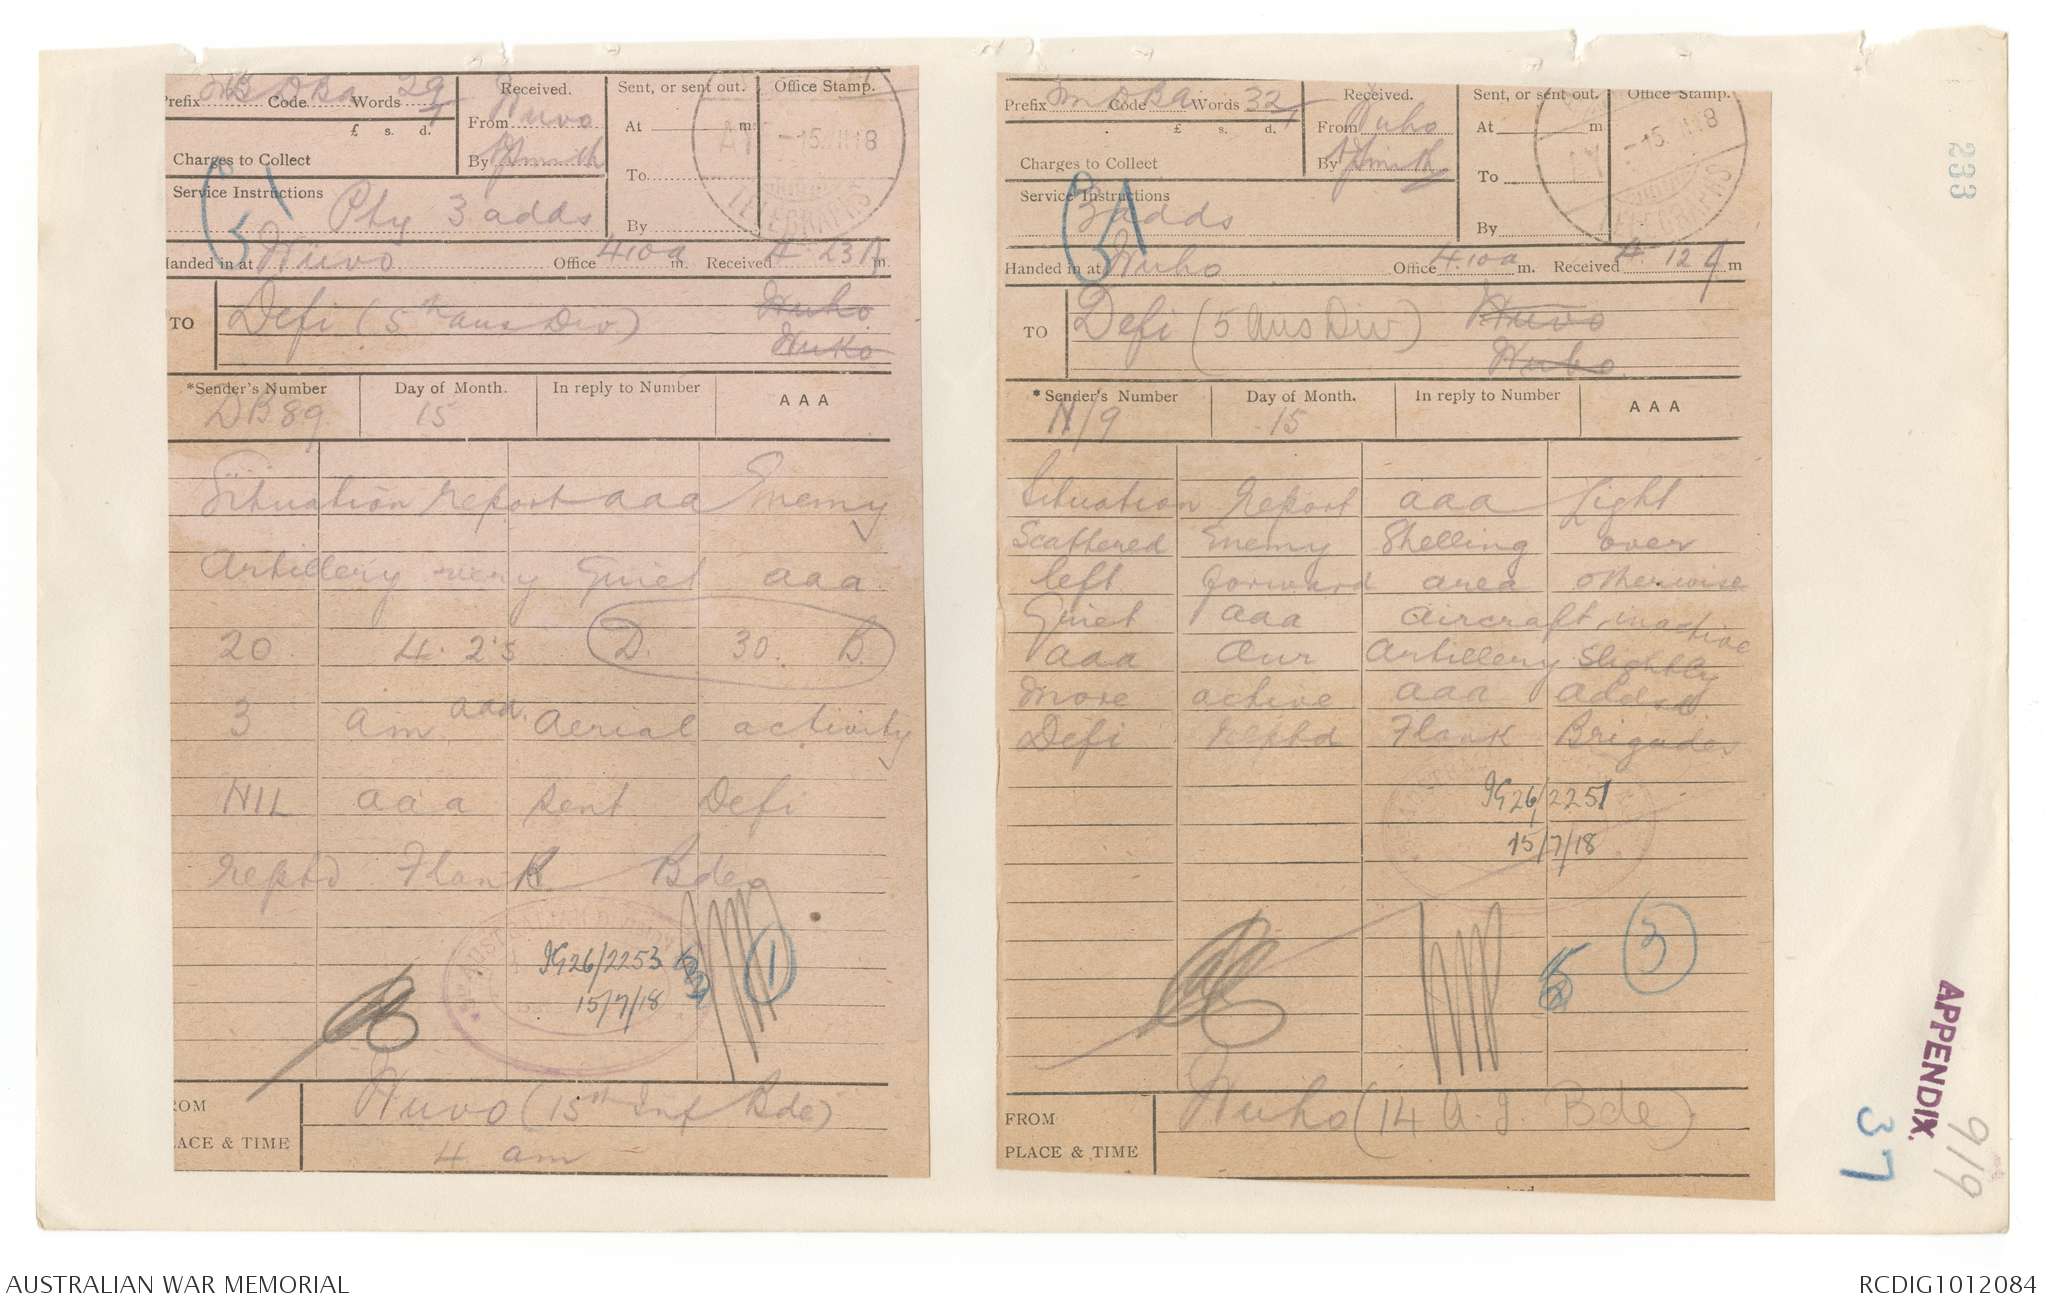 Prefix SMB Code DBA Words 29
£ s. d.
Charges to Collect
Service Instructions
Phy 3 adds
Received.
From Nuvo
By Smith
Sent, or sent out.
At m
To
By
Office Stamp.
15.VII.18
TELEGRAPHS
Handed in at Nuvo Office 410a m. Received 4 23A m.
TO
Defi (5th Aus Div.)
Nuho
Nuko
*Sender's Number
DB89
Day of Month.
15
In reply to Number
AAA
Situation report aaa Enemy
Artillery very Quiet aaa
20 4.2's D. 30. B.
3 am aaa Aerial activity
NIL aaa sent Defi
reptd Flank Bdes
AUSTRALIAN DIVISION
IG26/2253
15/7/18
1
ROM
LACE & TIME
Nuvo (15th Inf Bde)
4 am
Prefix Sm Code DBA Words 32
£ s. d.
Charges to Collect
Service Instructions
3 adds
Received.
From Nuho
By Smith
Sent, or sent out.
At m
To
By
Office Stamp.
15.VII.18
TELEGRAPHS
Handed in at Nuho Office 4.10a m. Received 4.12 A m
TO
Defi (5 Aus Div)
Nuvo
Nuho
*Sender's Number
N/9
Day of Month.
15
In reply to Number
AAA
Situation Report aaa Light
Scattered Enemy Shelling over
left forward area otherwise
Quiet aaa Aircraft inactive
aaa Our Artillery Slightly
more active aaa addsd
Defi reptd Flank Brigades
IG26/2251
15/7/18
3
FROM
PLACE & TIME
Nuho (14 A.I. Bde)
233
APPENDIX.
919
37
AUSTRALIAN WAR MEMORIAL
RCDIG1012084